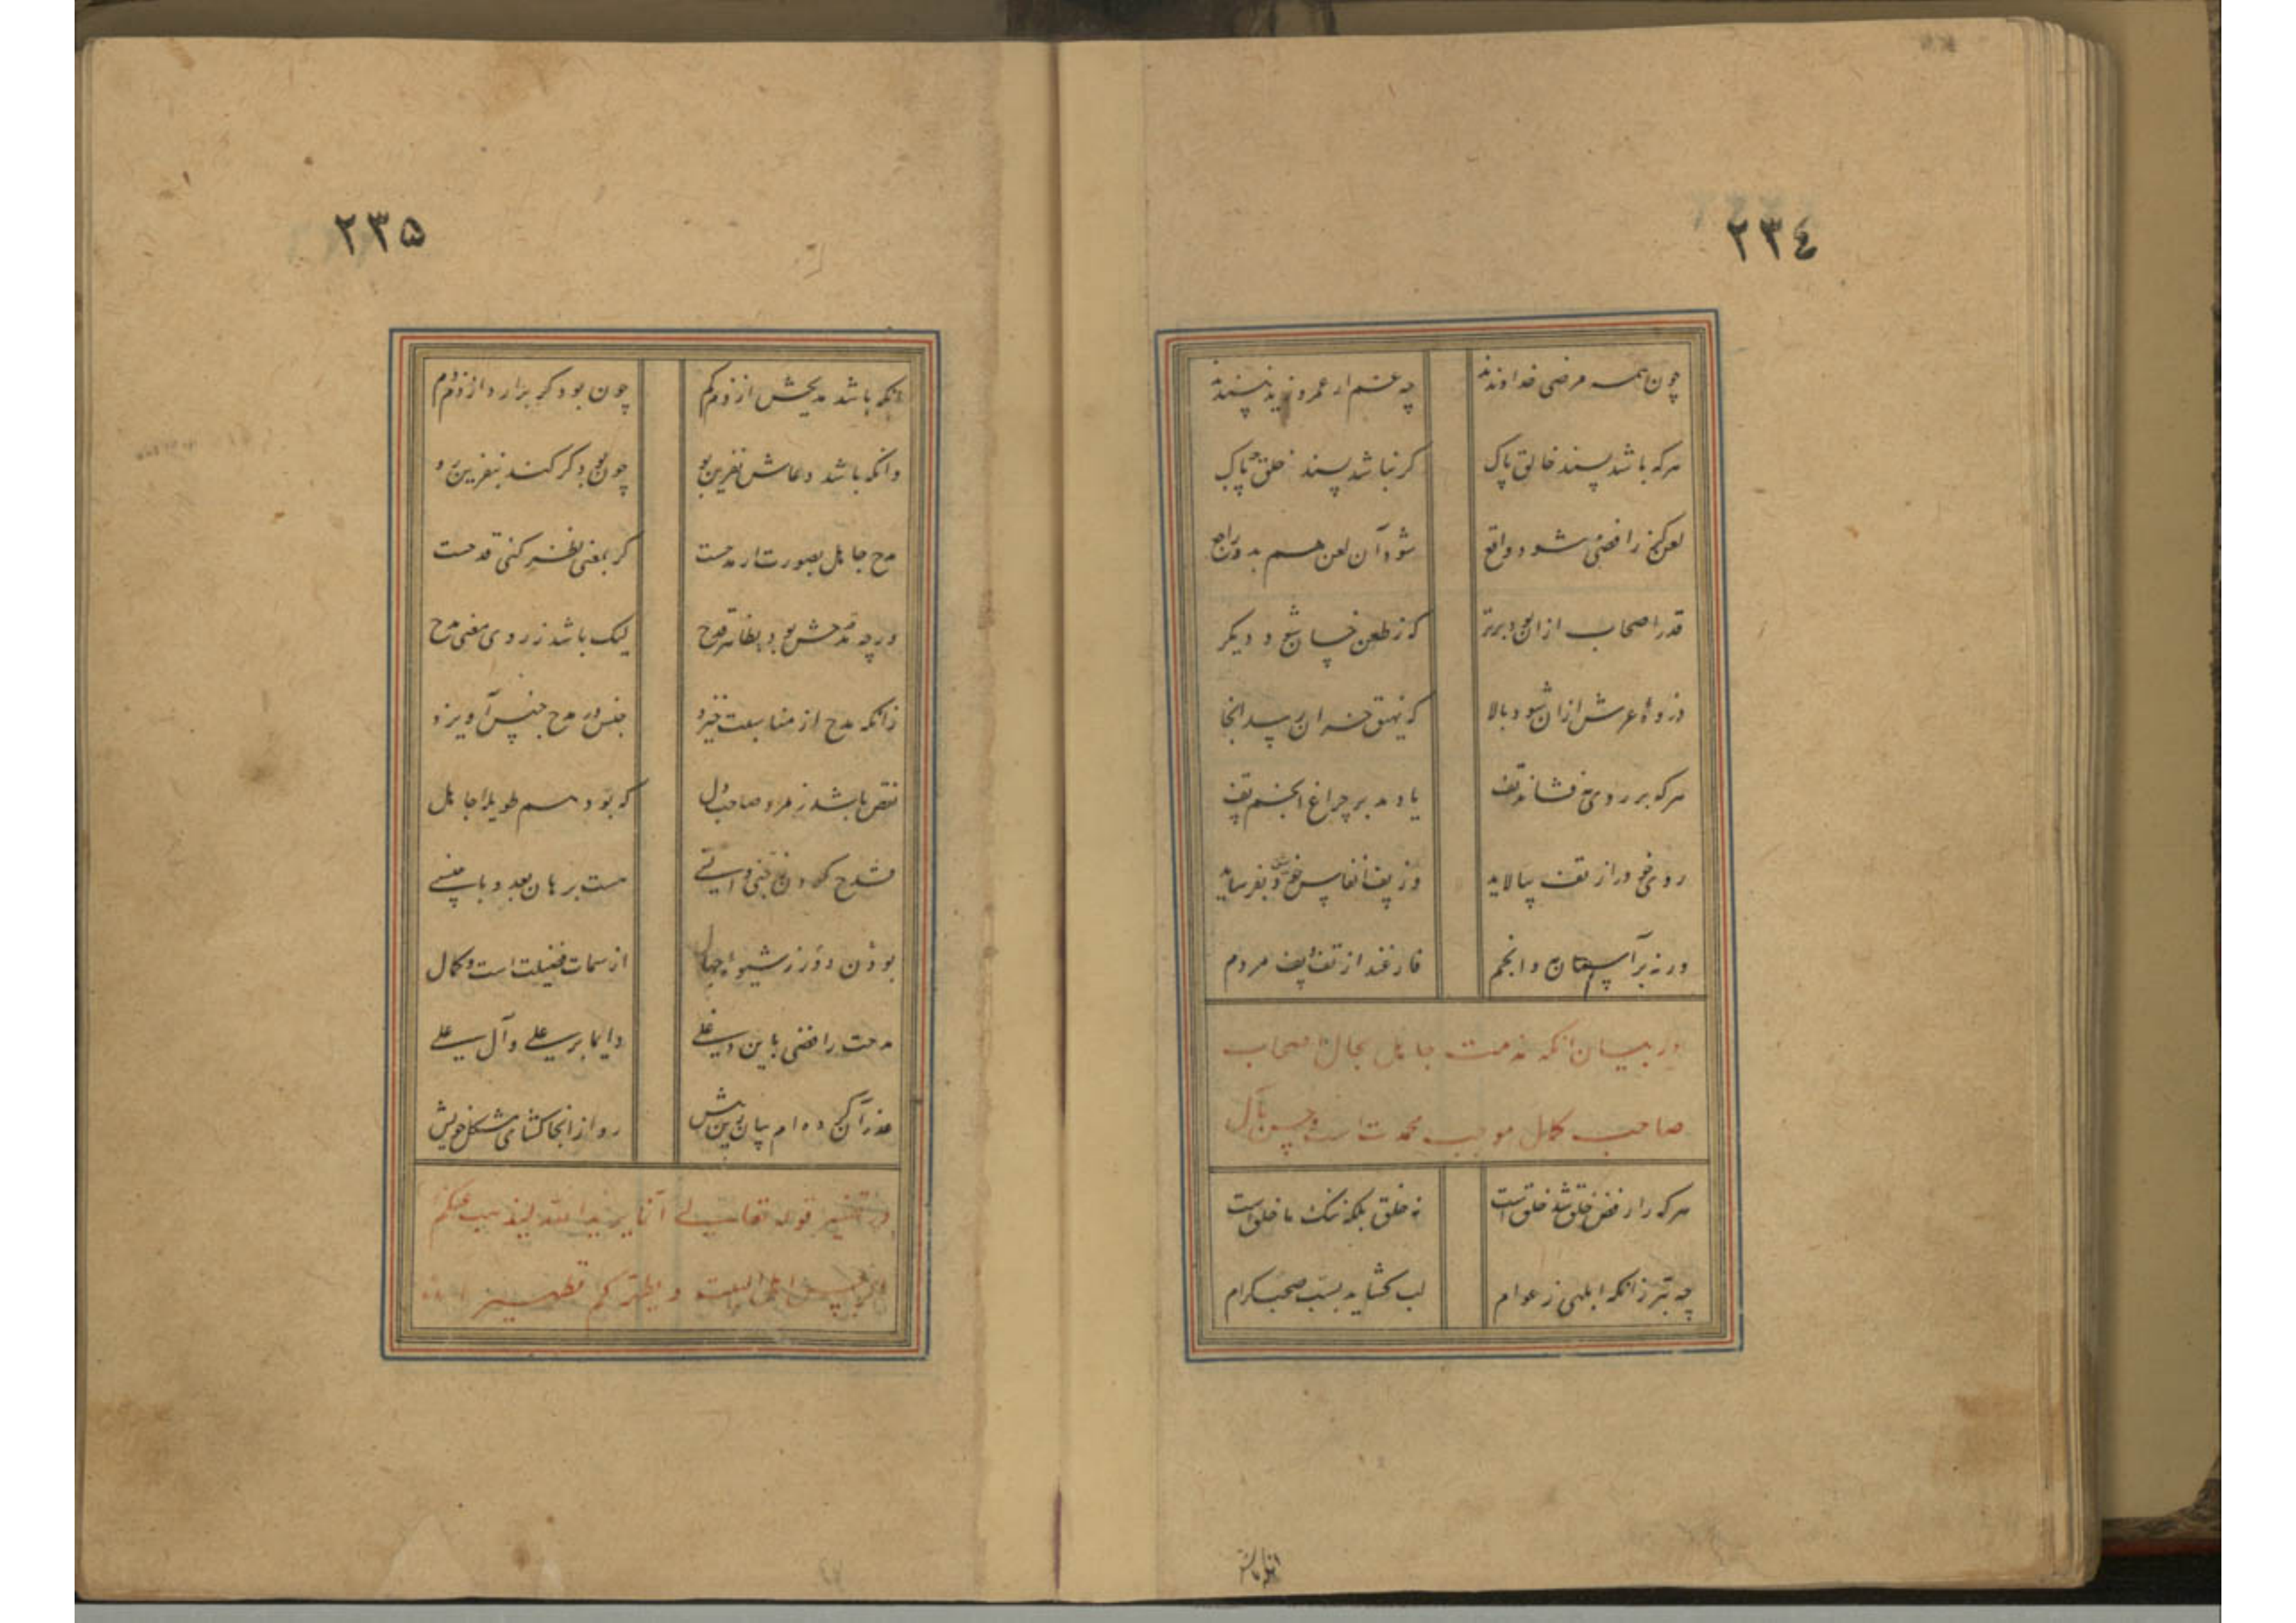 ٢٣٤
چون همه مرضی خداوندند چه غم ار عمرو و زید نپسندند
هرکه باشد پسند خالق پاک گر نباشد پسند خلق چه باک
لعن کز رافضی شود واقع شود آن لعن هم بدو راجع
قدر اصحاب ازان بود برتر که ز طعن خسان شود دیگر
ذروه عرش ازان بود بالا که نهیق خران رسد آنجا
هرکه بر روی خور فشاند تف یا دمد بر چراغ انجم پف
روی خود را از تف بیالاید وز پف انفاس خود بفرساید
ورنه بر آسمان خور و انجم فارغند از تف و پف مردم
در بیان آنکه مذمت جاهل بحال اصحاب
صاحب کمال موجب محمدت است و حسن مآل
هرکه را رفض خلق شد خلق است نه خلق بلکه ننگ ما خلق است
چه بتر زانکه ابلهی ز عوام لب گشاید بسب صحب کرام
٢٣٥
آنکه باشد مدیحش از ذم کم چون بود گر برآرد از ذم دم
وانکه باشد دعاش نفرین بو چون بود گر کند بنفرین رو
مدح جاهل بصورت ار مدحست گر بمعنی نظر کنی قدحست
ورچه قدحش بود بظاهر قدح لیک باشد ز روی معنی مدح
زانکه مدح از مناسبت خیزد جنس در مدح جنس آویزد
نقص باشد ز مرد صاحبدل که بود هم طویله جاهل
قدح کردن نه جنس را ستی هست برهان بعد و بی جنسی
بودن دور ز شیوه جهال از سمات فضیلت است و کمال
مدحت رافضی باین دغلی دایما بر علی و آل علی
عذر آن کرده ام بیان زین پیش رو از آنجا گشای مشکل خویش
در تفسیر قوله تعالی انما یرید الله لیذهب عنکم
الرجس اهل البیت و یطهرکم تطهیرا